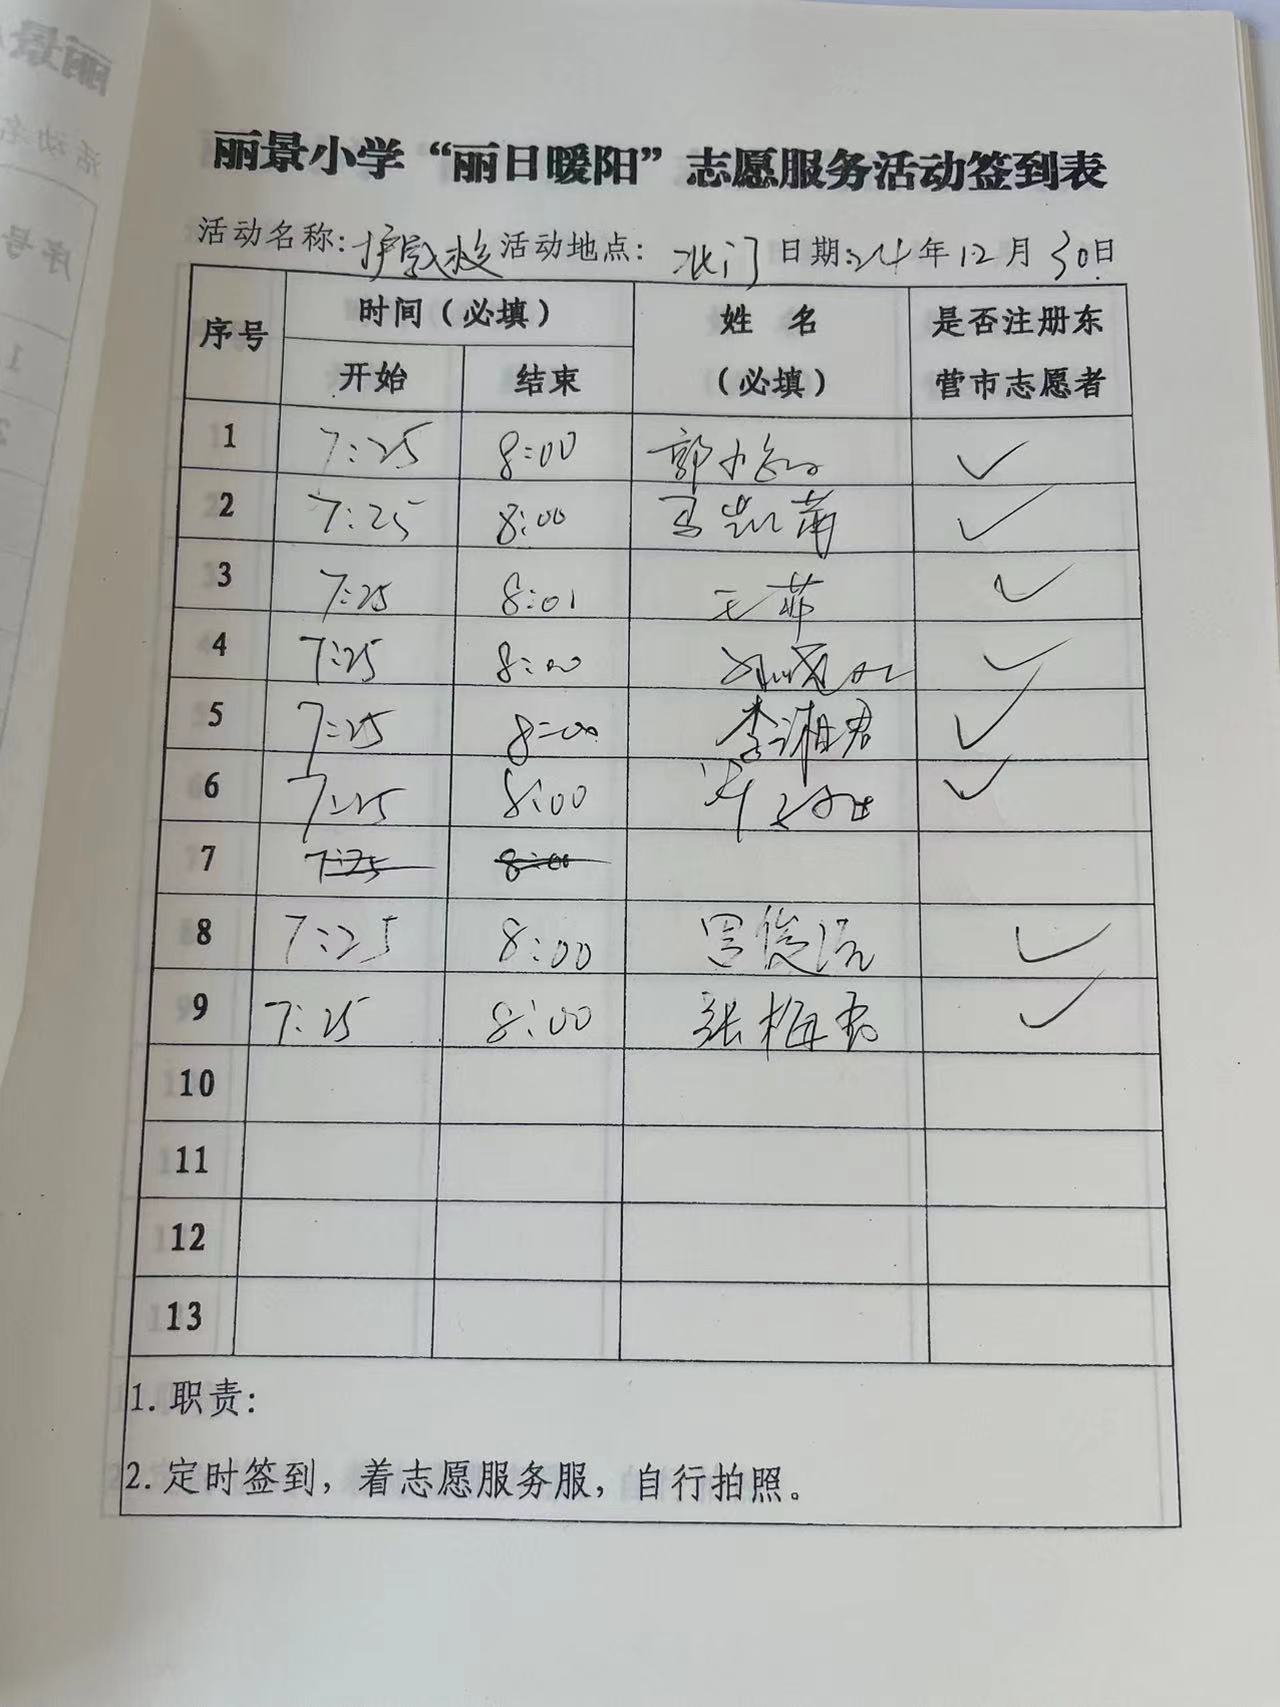 丽景小学“丽日暖阳”志愿服务活动签到表
活动名称: 护学 活动地点: 北门 日期: 24年12月30日
序号 时间（必填） 姓 名 （必填） 是否注册东营市志愿者
开始 结束
1 7:25 8:00 郭 ✓
2 7:25 8:00 ✓
3 7:25 8:01 王菲 ✓
4 7:25 8:00 ✓
5 7:25 8:00 李湘君 ✓
6 7:25 8:00 ✓
7 7:25 8:00
8 7:25 8:00 ✓
9 7:25 8:00 张梅 ✓
10
11
12
13
1. 职责:
2. 定时签到，着志愿服务服，自行拍照。